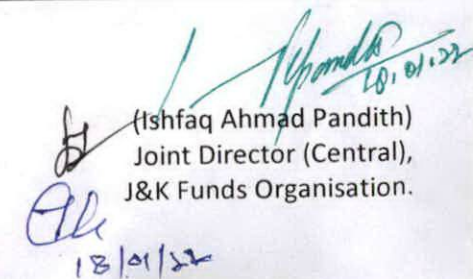 18.01.22
(Ishfaq Ahmad Pandith)
Joint Director (Central),
J&K Funds Organisation.
18/01/22